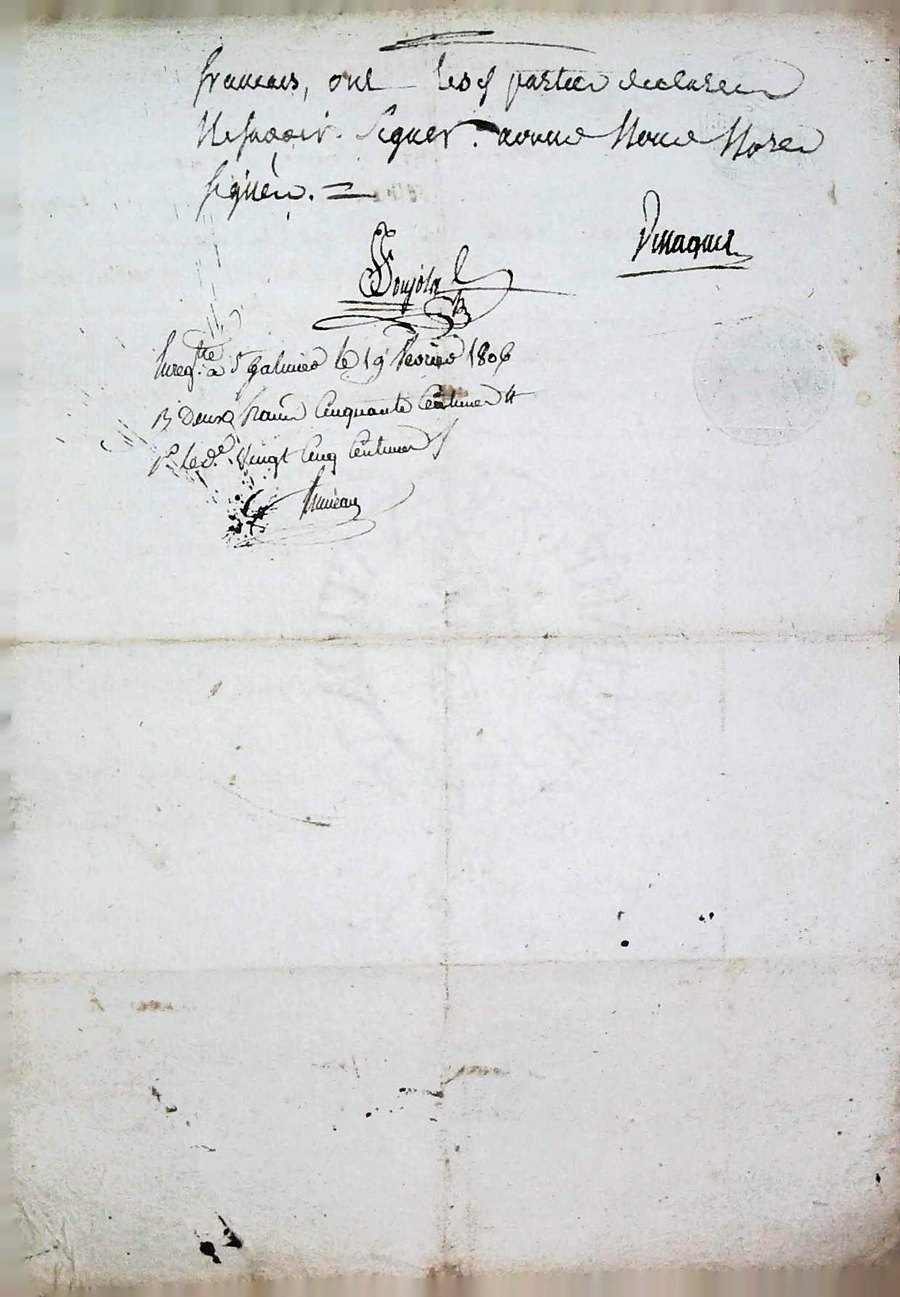 francais, ont lesd parties declaré
Ne savoir signer. avons Nous Nore
signéz.
Enregtré a St galmier le 19 fevrier 1806
R Deux francs Cinquante Centimes
Pr le de. Vingt Cinq Centimes